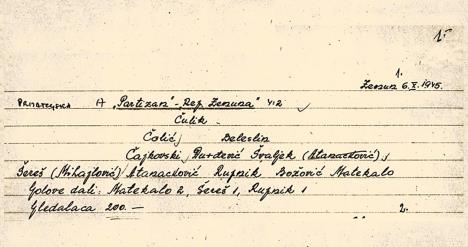 1.
1.
Zemun 6.X.1945.
PRIJATELJSKA A "Partizan" - Rep. Zemuna" 4:2 ✓
Čulik
Čolić Beleslin
Čajkovski, Đurđević Švaljek (Atanacković)
Šereš (Mihajlović) Atanacković Rupnik Božović Matekalo
Golove dali: Matekalo 2, Šereš 1, Rupnik 1
Gledalaca 200.—
2.